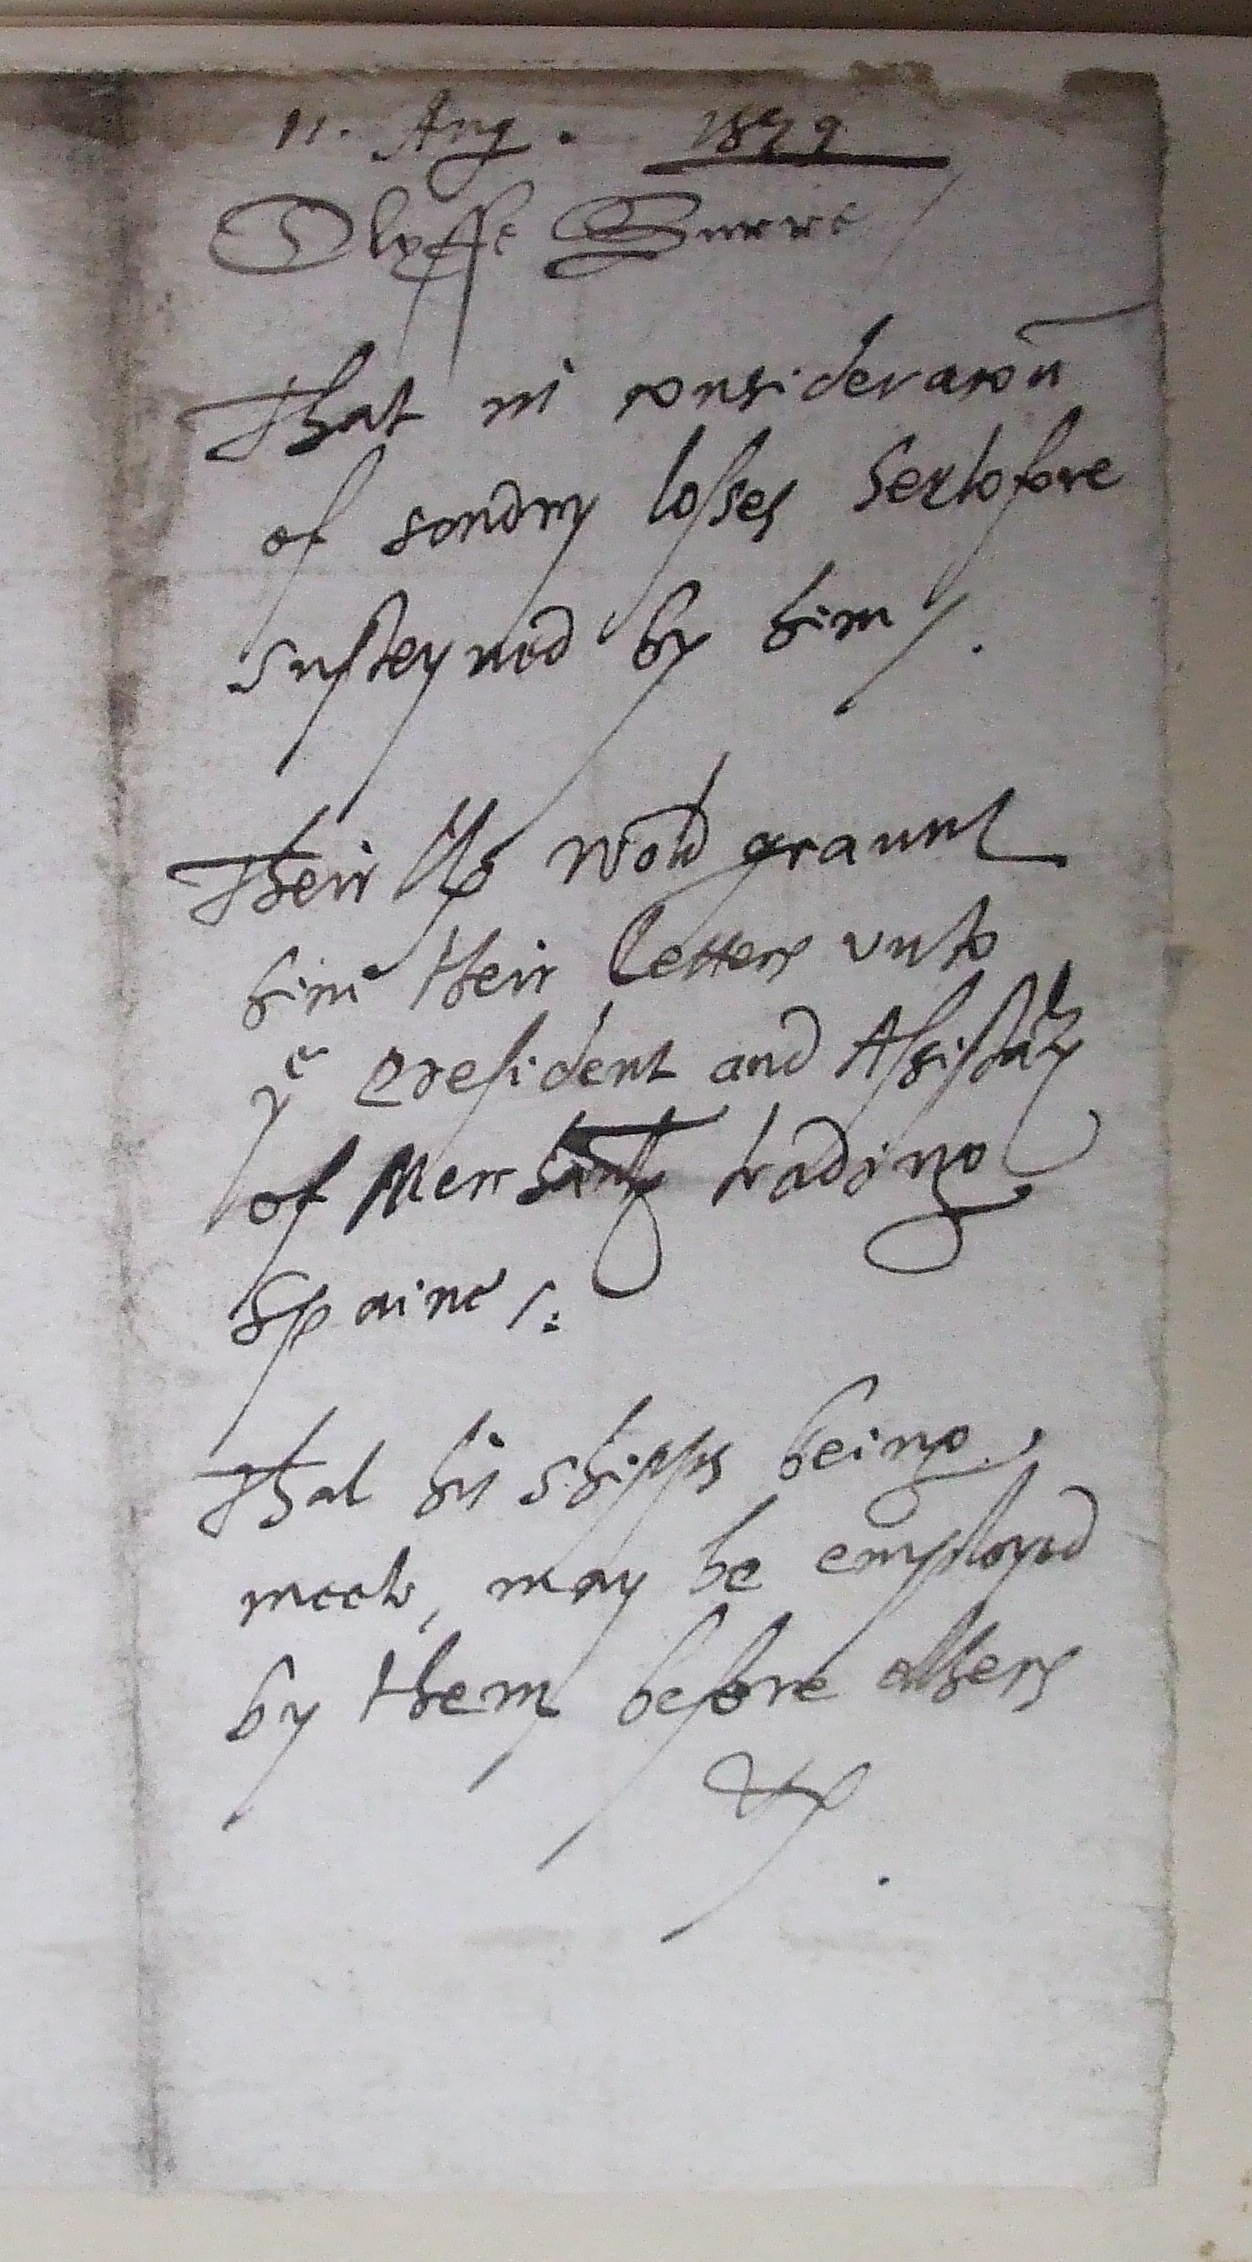 11. Aug. 1579
Olyffe Burre
That in consideracon
of sondry losses hertofore
susteyned by him /.
Their Lps wold graunt
him their Letters vnto
ye President and Assistantes
of Merchantes trading
Spaine /:
That his shippes being
meete, may be employed
by them before others
&c